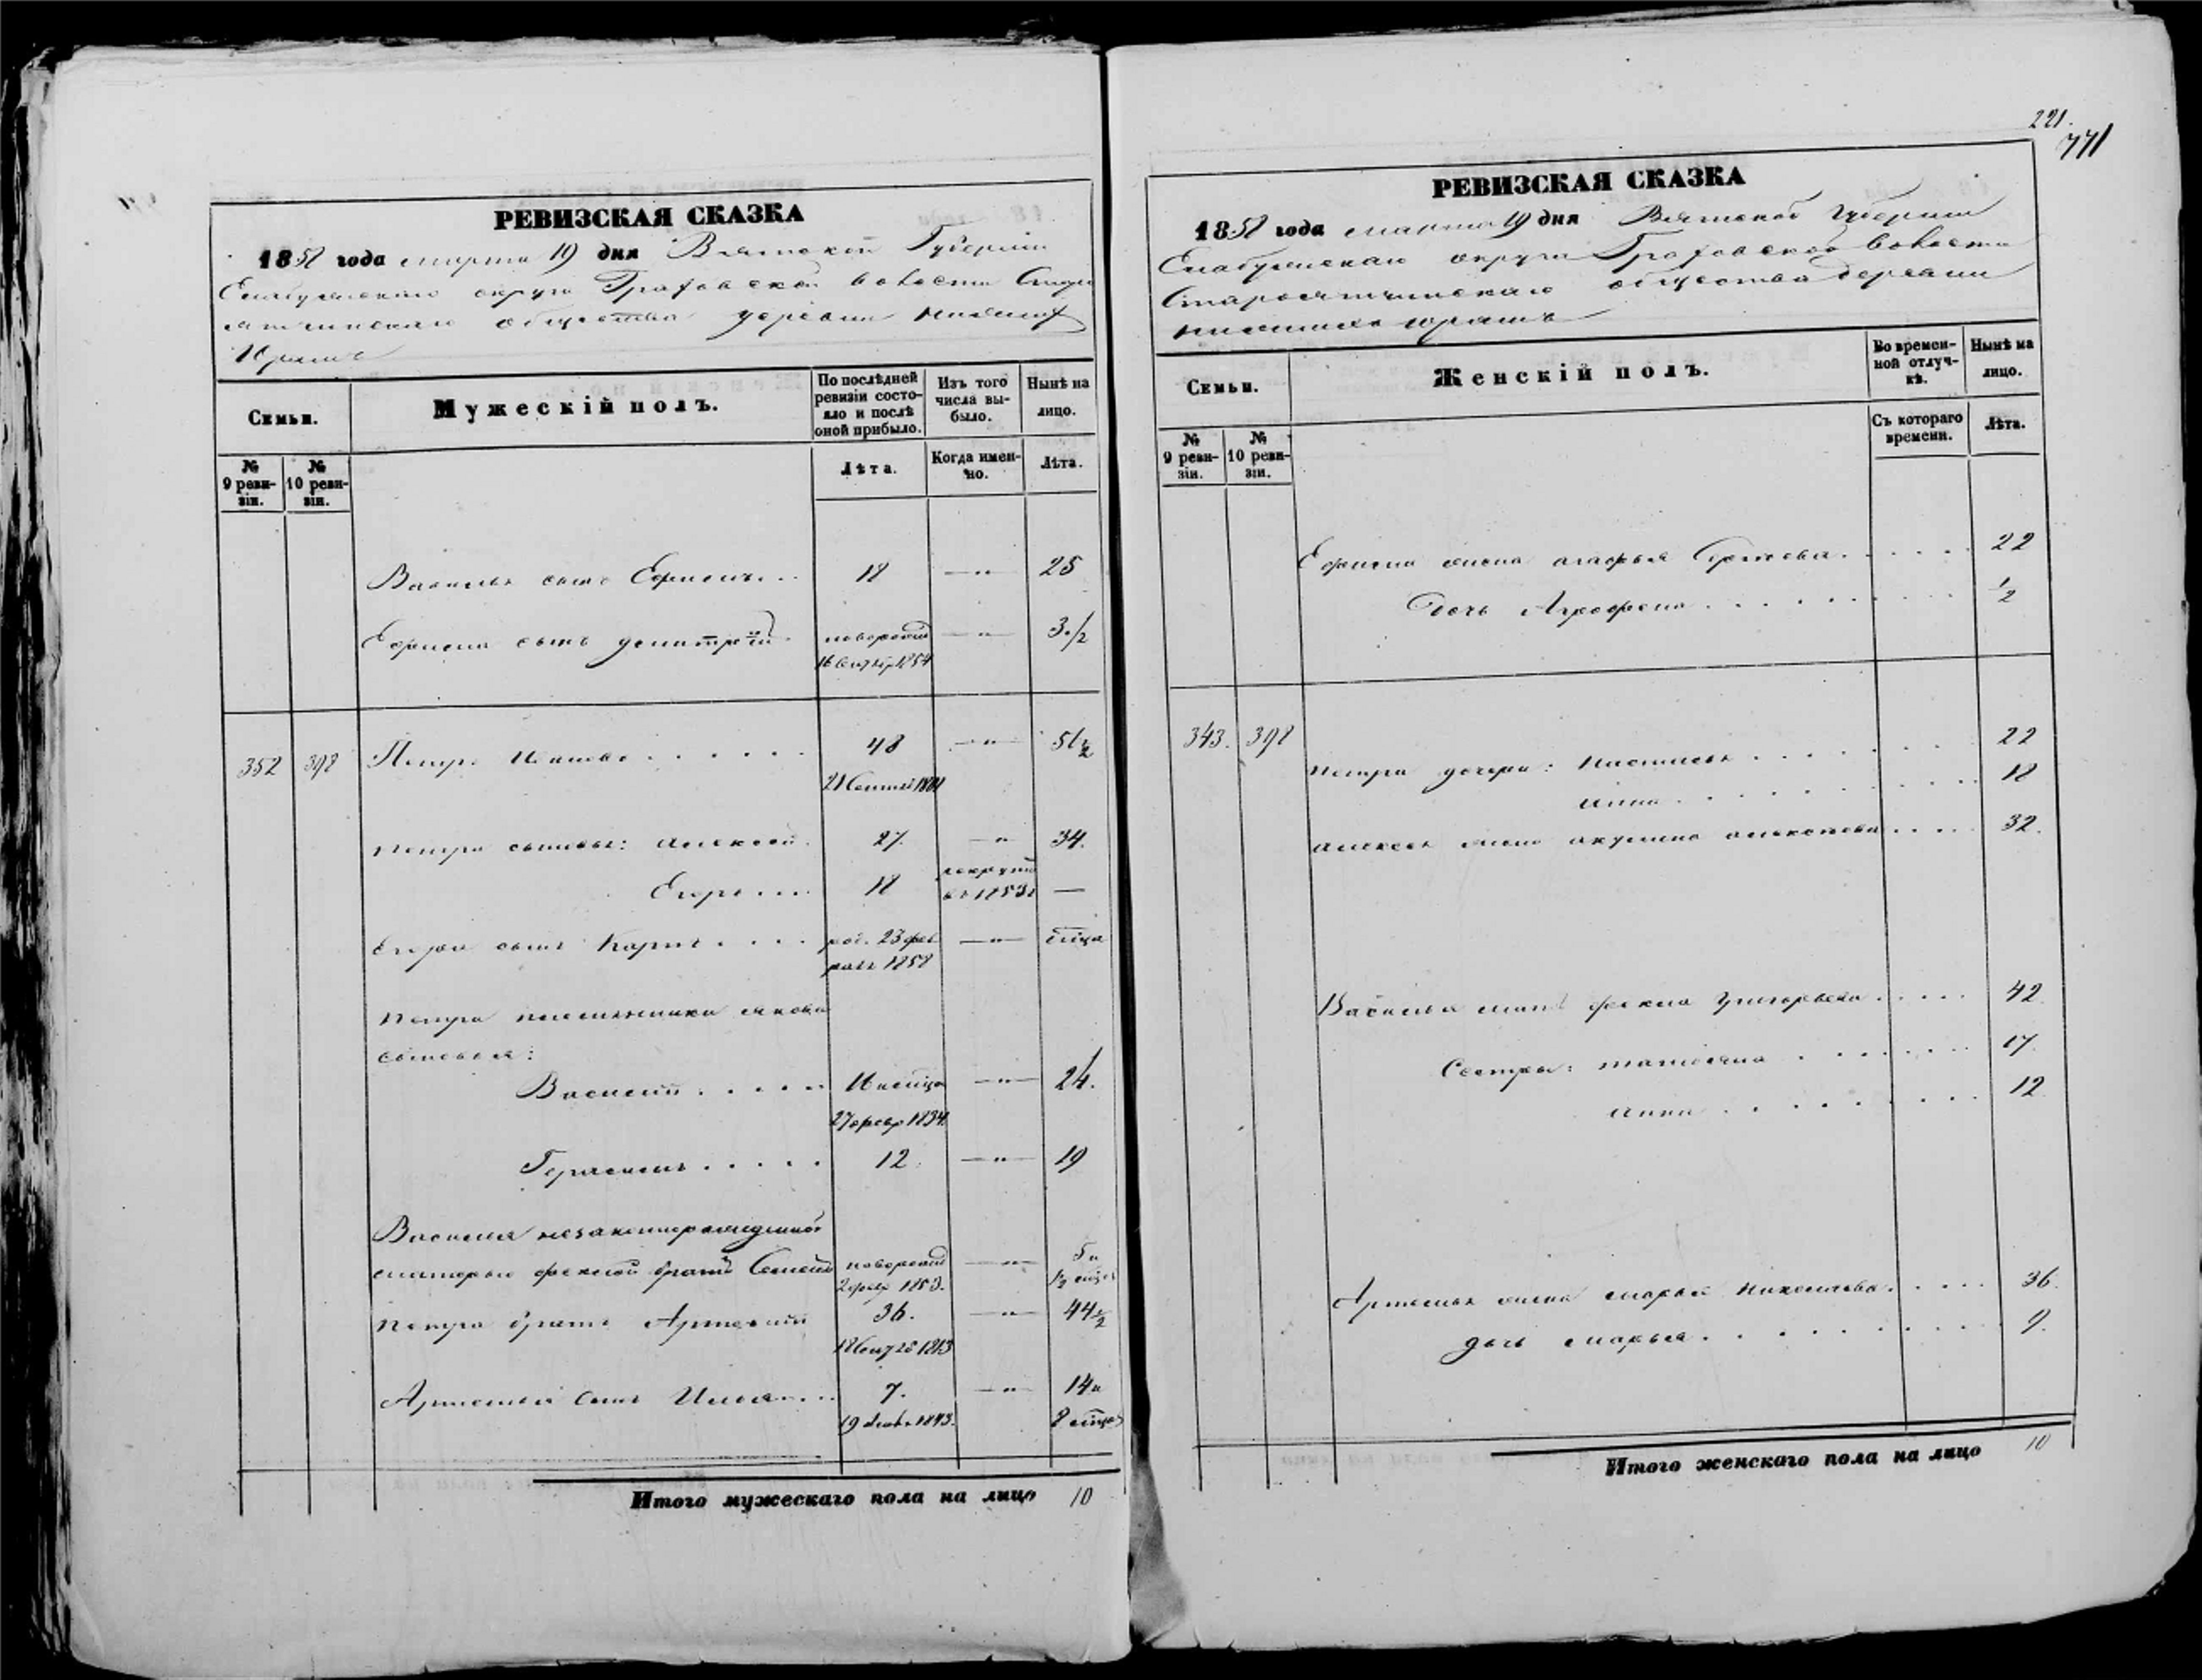 221.
771
РЕВИЗСКАЯ СКАЗКА
1858 года марта 19 дня Вятской Губернии
Елабужскаго округа Граховской волости Старо
ятчинскаго общества деревни Нижних
Юрашъ
Семьи.
Мужескій полъ.
По послѣдней ревизіи состояло и послѣ оной прибыло.
Изъ того числа выбыло.
Нынѣ на лицо.
№ 9 ревизіи.
№ 10 ревизіи.
Лѣта.
Когда именно.
Лѣта.
Василья сынъ Ефимъ . . 18 —"— 25
Ефима сынъ Дмитрій новорожд —"— 3 1/2
16 Сентяб 1854
352 398 Петръ Ивановъ . . . . . . 48 —"— 51 1/2
21 Сентяб
Петра сыновья: Алексей . 27. —"— 34.
Егоръ . . . 18 рекрут въ 1853 г —
Егора сынъ Карпъ . . . . рож. 23 фев —"— мѣца
раля 1858
Петра племянники Якова
сыновья:
Василій . . . . . —"— 24.
27 февр 1834
Герасимъ . . . . . 12. —"— 19
Василья незаконнорожденной
матерью Феклой братъ Семенъ новорожд —"— 5 и
2 февр 1853.
Петра братъ Артемій 36. —"— 44 1/2
18 Сентяб 1813
Артемья сынъ Илья . . . . 7. —"— 14 и
19 1843. 8 мѣцов
Итого мужескаго пола на лицо 10
РЕВИЗСКАЯ СКАЗКА
1858 года марта 19 дня Вятской Губернии
Елабужскаго округа Граховской волости
Староятчинскаго общества деревни
Нижнихъ Юрашъ
Семьи.
Женскій полъ.
Во временной отлучкѣ.
Нынѣ на лицо.
№ 9 ревизіи.
№ 10 ревизіи.
Съ котораго времени.
Лѣта.
Ефима жена Агафья . . . . . 22
Дочь Аграфена . . . . . . . . . 1/2
343. 398
Петра дочери: Настасья . . . . . . 22
Анна . . . . . . . . 18
Алексея жена Акулина Алексеева . . . . . 32.
Василья мать Фекла Григорьева . . . . . 42
Сестры: Татьяна . . . . . . . 17.
Анна . . . . . . . . 12
Артемья жена Марья Николаева . . . . . 36.
дочь Марья . . . . . . . . . 9.
Итого женскаго пола на лицо 10